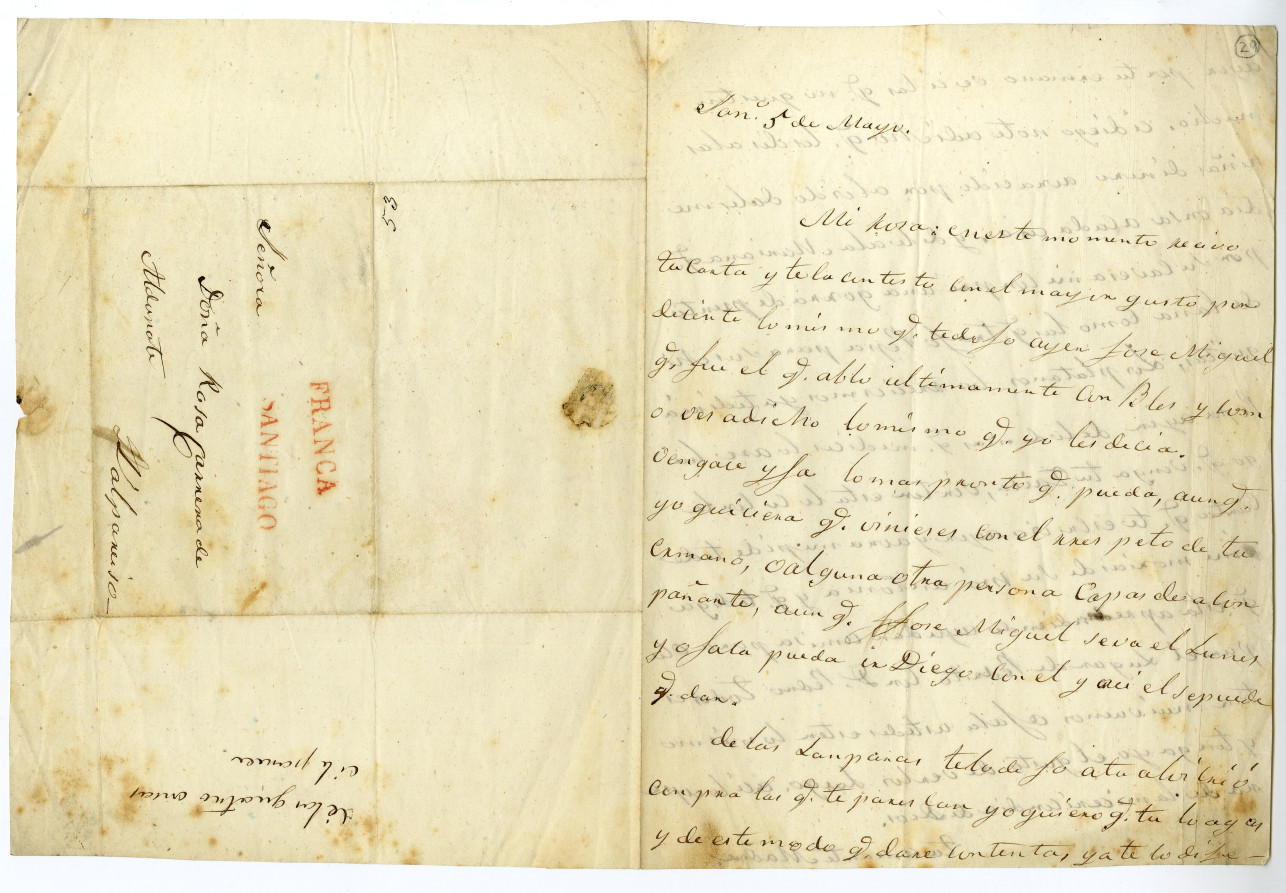 29
San.º 5 de Mayo.
Mi Rosa: en este momento recivo
tu carta y te la contesto con el mayor gusto por
decirte lo mismo q.e te dijo ayer Jose Miguel
q.e fue el q.e ablo ultimamente con Bles y com
o ves a dicho lo mismo q.e yo les decia.
vengace y Ja lo mas pronto q.e pueda, aunq.e
yo quiciera q.e vinieses con el rres peto de tu
ermano, o alguna otra persona Capas de acon
pañarte, aun q.e Jose Miguel se va el Lunes
y ojala pueda ir Diego con el y aci el se puede
q.e dar.
de las Lanparas te lo dejo a tu alvitrió
conpra las q.e te parescan yo quiero q.e tu lo agas
y de este modo q.e dare contenta, ya te lo dije –
5-5
Señora
Doña Rosa Carrera de
Aldunate
Valparaiso
FRANCA
SANTIAGO
de las quatro